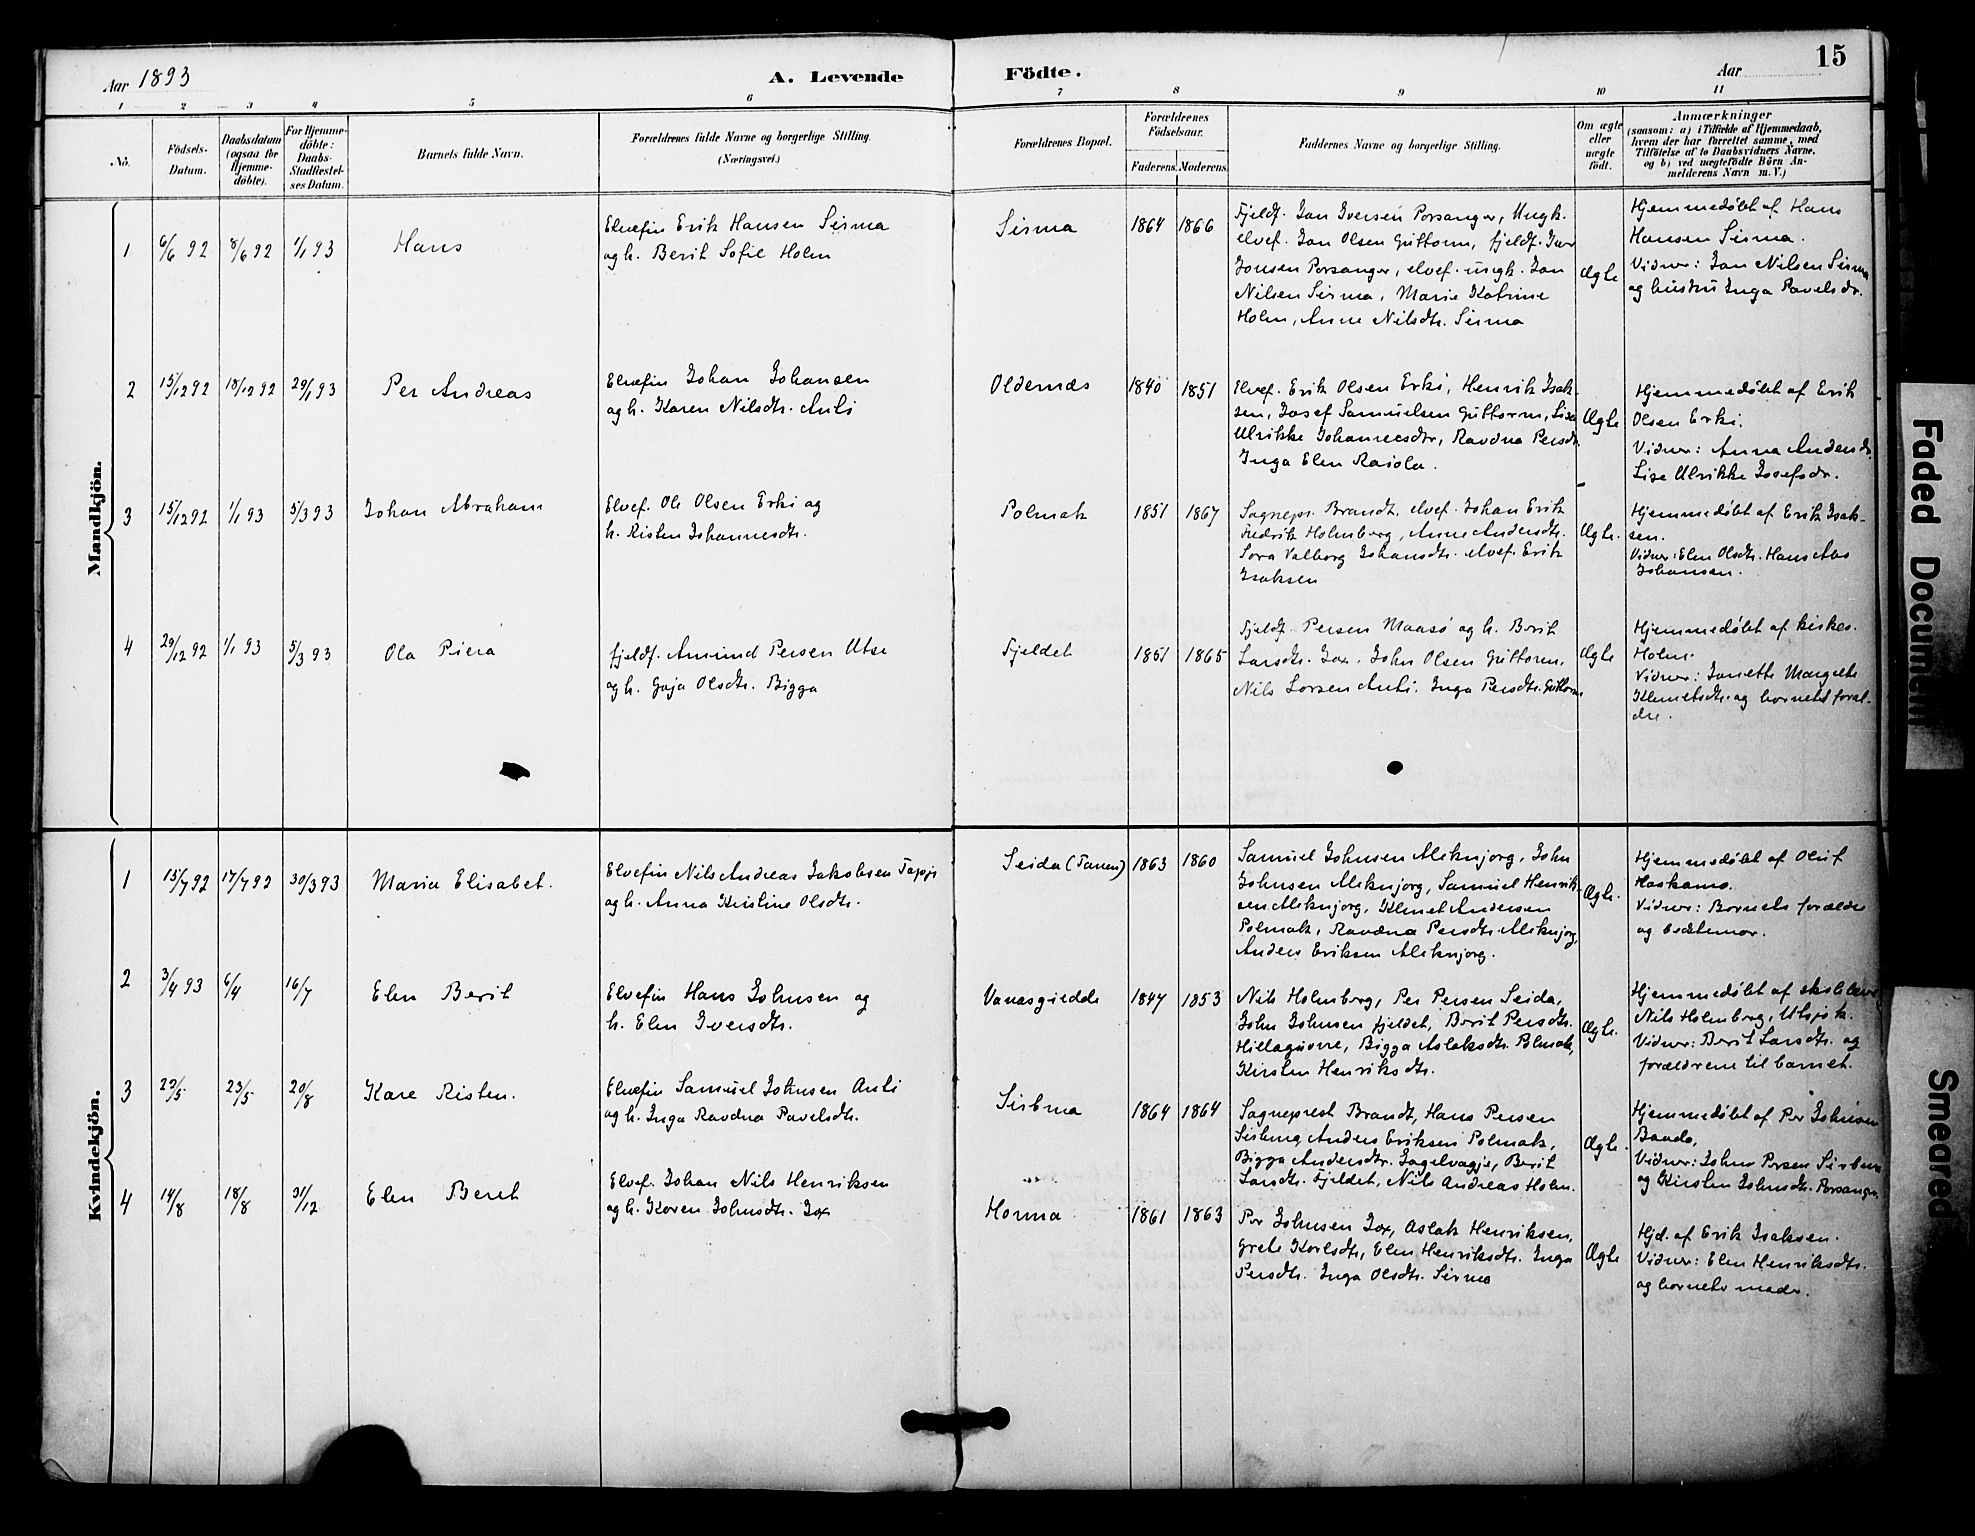 15
Aar 1893
A. Levende
Födte.
Aar
1 2 3 4 5 6 7 8 9 10 11
No.
Födsels-
Datum.
Daabsdatum
(ogsaa for
Hjemme-
döbte).
For Hjemme-
döbte:
Daabs-
Stadfæstel-
ses Datum.
Barnets fulde Navn.
Forældrenes fulde Navne og borgerlige Stilling.
(Næringsvei.)
Forældrenes Bopæl.
Forældrenes
Födselsaar.
Faderens. Moderens.
Faddernes Navne og borgerlige Stilling.
Om ægte
eller
uægte
födt.
Anmærkninger
(saasom: a) i Tilfælde af Hjemmedaab,
hvem der har forrettet samme, med
Tilföielse af to Daabsvidners Navne,
og b) ved uægtefödte Börn An-
melderens Navn m. V.)
Mandkjön.
1 6/6 92 8/6 92 1/1 93
Hans
Elvefin Erik Hansen Sirma
og h. Berit Sofie Holm
Sirma
1864 1866
Fjeldf. Jon Iversen Porsanger, Ungk.
elvef. Jon Olsen Guttorm, fjeldf. Iver
Jonsen Porsanger, elvef. ungk. Jon
Nilsen Sirma, Marie Katrine
Holm, Anne Nilsdtr. Sirma
Ægte
Hjemmedøbt af Hans
Hansen Sirma.
Vidner: Jon Nilsen Sirma
og hustru Inga Pavelsdr.
2 15/12 92 18/12 92 29/1 93
Per Andreas
Elvefin Johan Johansen
og h. Karen Nilsdtr. Anti
Oldernæs
1840 1851
Elvef. Erik Olsen Erki, Henrik Isak-
sen, Josef Samuelsen Guttorm, Lisa
Ulrikke Johannesdtr, Ravdna Persdtr.
Inga Elen Raiola.
Ægte
Hjemmedøbt af Erik
Olsen Erki.
Vidner: Anna Andersdr.
Lise Ulrikke Josefsdr.
3 15/12 92 1/1 93 5/3 93
Johan Abraham
Elvef. Ole Olsen Erki og
h. Risten Johannesdtr.
Polmak
1851 1867
Sognepr. Brandt, elvef. Johan Erik
Fredrik Holmberg, Anne Andersdtr.
Sara Valborg Johansdtr. elvef. Erik
Isaksen
Ægte.
Hjemmedøbt af Erik Isak-
sen.
Vidner: Elen Olsdtr. Hans Abs
Johansen.
4 29/12 92 1/1 93 5/3 93
Ola Piera
fjeldf. Amund Persen Utse
og h. Gaja Olsdtr. Bigga
Fjeldet
1851 1865
Fjeldf. Persen Maasø og h. Berit
Larsdtr. Jox. John Olsen Guttorm,
Nils Larsen Anti. Inga Persdtr. Guttorm
Ægte
Hjemmedøbt af kirkes.
Holm.
Vidner: Janette Margrete
Klemetsdtr. og barnets foræl-
dre.
Kvindekjön.
1 15/7 92 17/7 92 30/3 93
Maria Elisabet.
Elvefin Nils Andreas Jakobsen Tapje
og h. Anna Kristine Olsdtr.
Seida (Tanen)
1863 1860
Samuel Johnsen Aleknjarg, John
Johnsen Aleknjarg, Samuel Henrik-
sen Aleknjarg, Klemet Andersen
Polmak, Ravdna Persdtr. Aleknjarg,
Anders Eriksen Aleknjarg.
Ægte.
Hjemmedøbt af Oluf
Haskamo.
Vidner: Barnets forældre
og bedstemor.
2 3/4 93 6/4 16/7
Elen Berit
Elvefin Hans Johnsen og
h. Elen Iversdtr.
Vanasgiedde
1847 1853
Nils Holmberg, Per Persen Seida,
John Johnsen fjeldet, Berit Persdtr.
Hillaguovre, Bigga Aslaksdtr. Polmak,
Kirsten Henriksdtr.
Ægte.
Hjemmedøbt af skolelærer
Nils Holmberg, Utsjok.
Vidner: Berit Larsdtr. og
forældrene til barnet.
3 22/5 23/5 20/8
Kare Risten.
Elvefin Samuel Johnsen Anti
og h. Inga Ravdna Pavelsdtr.
Sirbma
1864 1864
Sogneprest Brandt, Hans Persen
Sirbma, Anders Eriksen Polmak,
Bigga Andersdtr. Jagelvagje, Berit
Larsdtr. Fjeldet, Nils Andreas Holm.
Ægte.
Hjemmedøbt af Per Johnsen
Baudo.
Vidner: Johns Persen Sirbma
og Kirsten Johnsdtr. Porsanger.
4 14/8 18/8 31/12
Elen Beret
Elvef. Johan Nils Henriksen
og h. Karen Johnsdtr. Jox
Horma
1861 1863
Per Johnsen Jox, Aslak Henriksen,
Grete Karlsdtr, Elen Henriksdtr. Inga
Persdtr. Inga Olsdtr. Sirma
Ægte
Hjd. af Erik Isaksen.
Vidner: Elen Henriksdtr.
og barnets moder.
Faded Document
Smeared